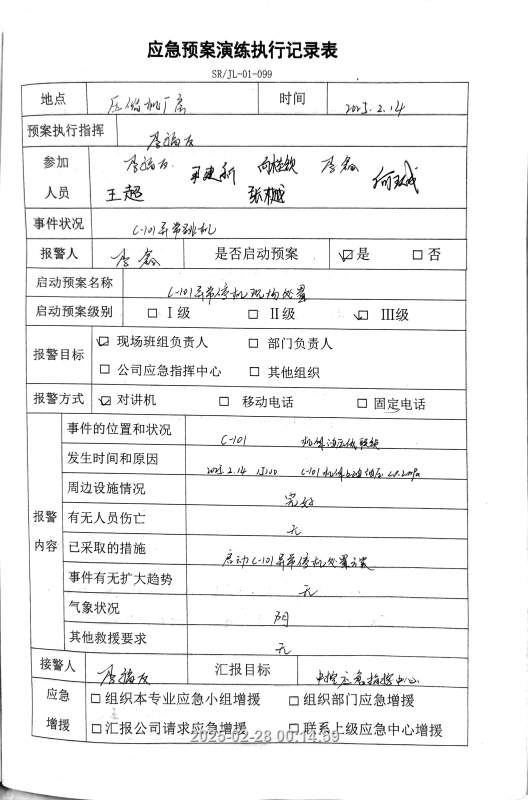 应急预案演练执行记录表
SR/JL-01-099
地点 压缩机厂房 时间 2025.2.14
预案执行指挥 李福友
参加 李福友 王建新 李鑫
人员 王超
事件状况 C-101异常跳机
报警人 李鑫 是否启动预案 ☑是 □否
启动预案名称 C-101异常停机现场处置
启动预案级别 □Ⅰ级 □Ⅱ级 ☑Ⅲ级
报警目标 ☑现场班组负责人 □部门负责人
□公司应急指挥中心 □其他组织
报警方式 ☑对讲机 □移动电话 □固定电话
报警内容
事件的位置和状况 C-101 机组油压低联锁
发生时间和原因 2025.2.14 15:00 C-101机组
周边设施情况 完好
有无人员伤亡 无
已采取的措施 启动C-101异常停机处置方案
事件有无扩大趋势 无
气象状况 阴
其他救援要求 无
接警人 李福友 汇报目标 中控应急指挥中心
应急 □组织本专业应急小组增援 □组织部门应急增援
增援 □汇报公司请求应急增援 □联系上级应急中心增援
2025-02-28 00:14:59